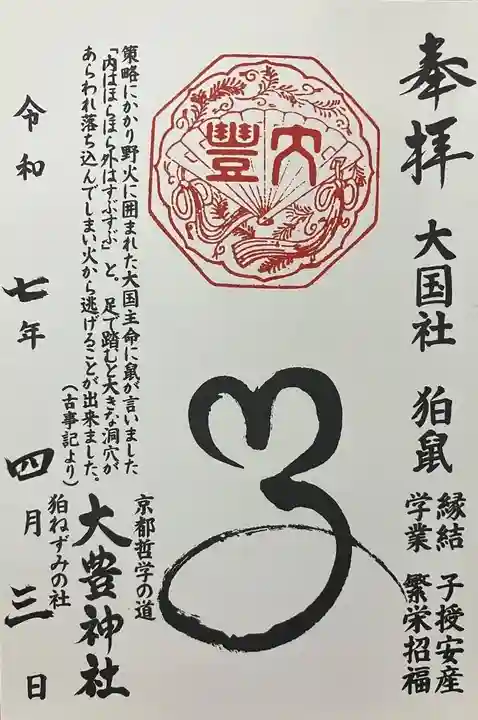 奉拝
大国社 狛鼠
縁結 子授安産
学業 繁栄招福
大豊
子
策略にかかり野火に囲まれた大国主命に鼠が言いました
「内はほらほら外はすぶすぶ」と。足で踏むと大きな洞穴が
あらわれ落ち込んでしまい火から逃げることが出来ました。
(古事記より)
京都哲学の道
大豊神社
狛ねずみの社
令和 七年 四月 三日